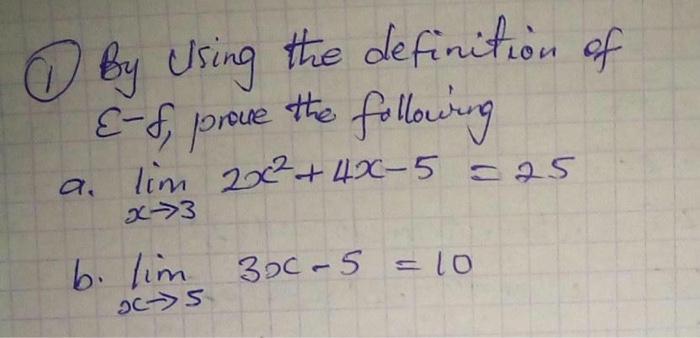 ① By Using the definition of
ε-δ, prove the following
a. lim 2x²+4x-5 = 25
x→3
b. lim 3x-5 = 10
x→5